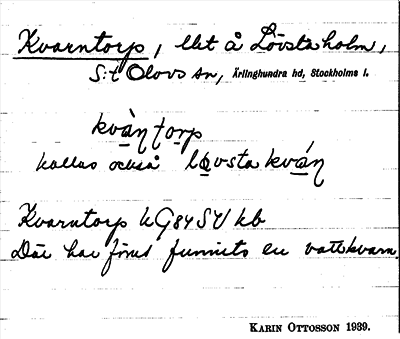 Kvarntorp, lht å Lövstaholm,
S:t Olovs sn, Ärlinghundra hd, Stockholms l.
kvàṇ ṭorp
kallas också lövsta kváṇ
Kvarntorp hG84SV kb
Där har förut funnits en vattkvarn.
KARIN OTTOSSON 1939.